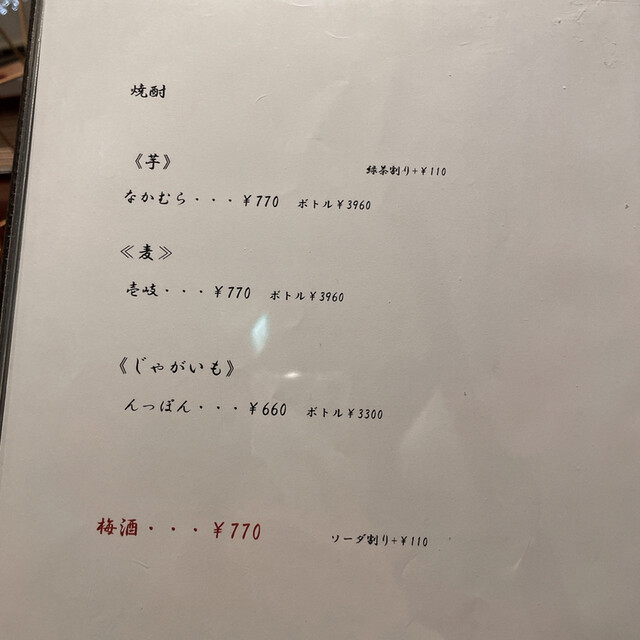 焼酎
《芋》
緑茶割り+￥110
なかむら・・・￥770 ボトル￥3960
≪麦≫
壱岐・・・￥770 ボトル￥3960
《じゃがいも》
んっぽん・・・￥660 ボトル￥3300
梅酒・・・￥770 ソーダ割り+￥110